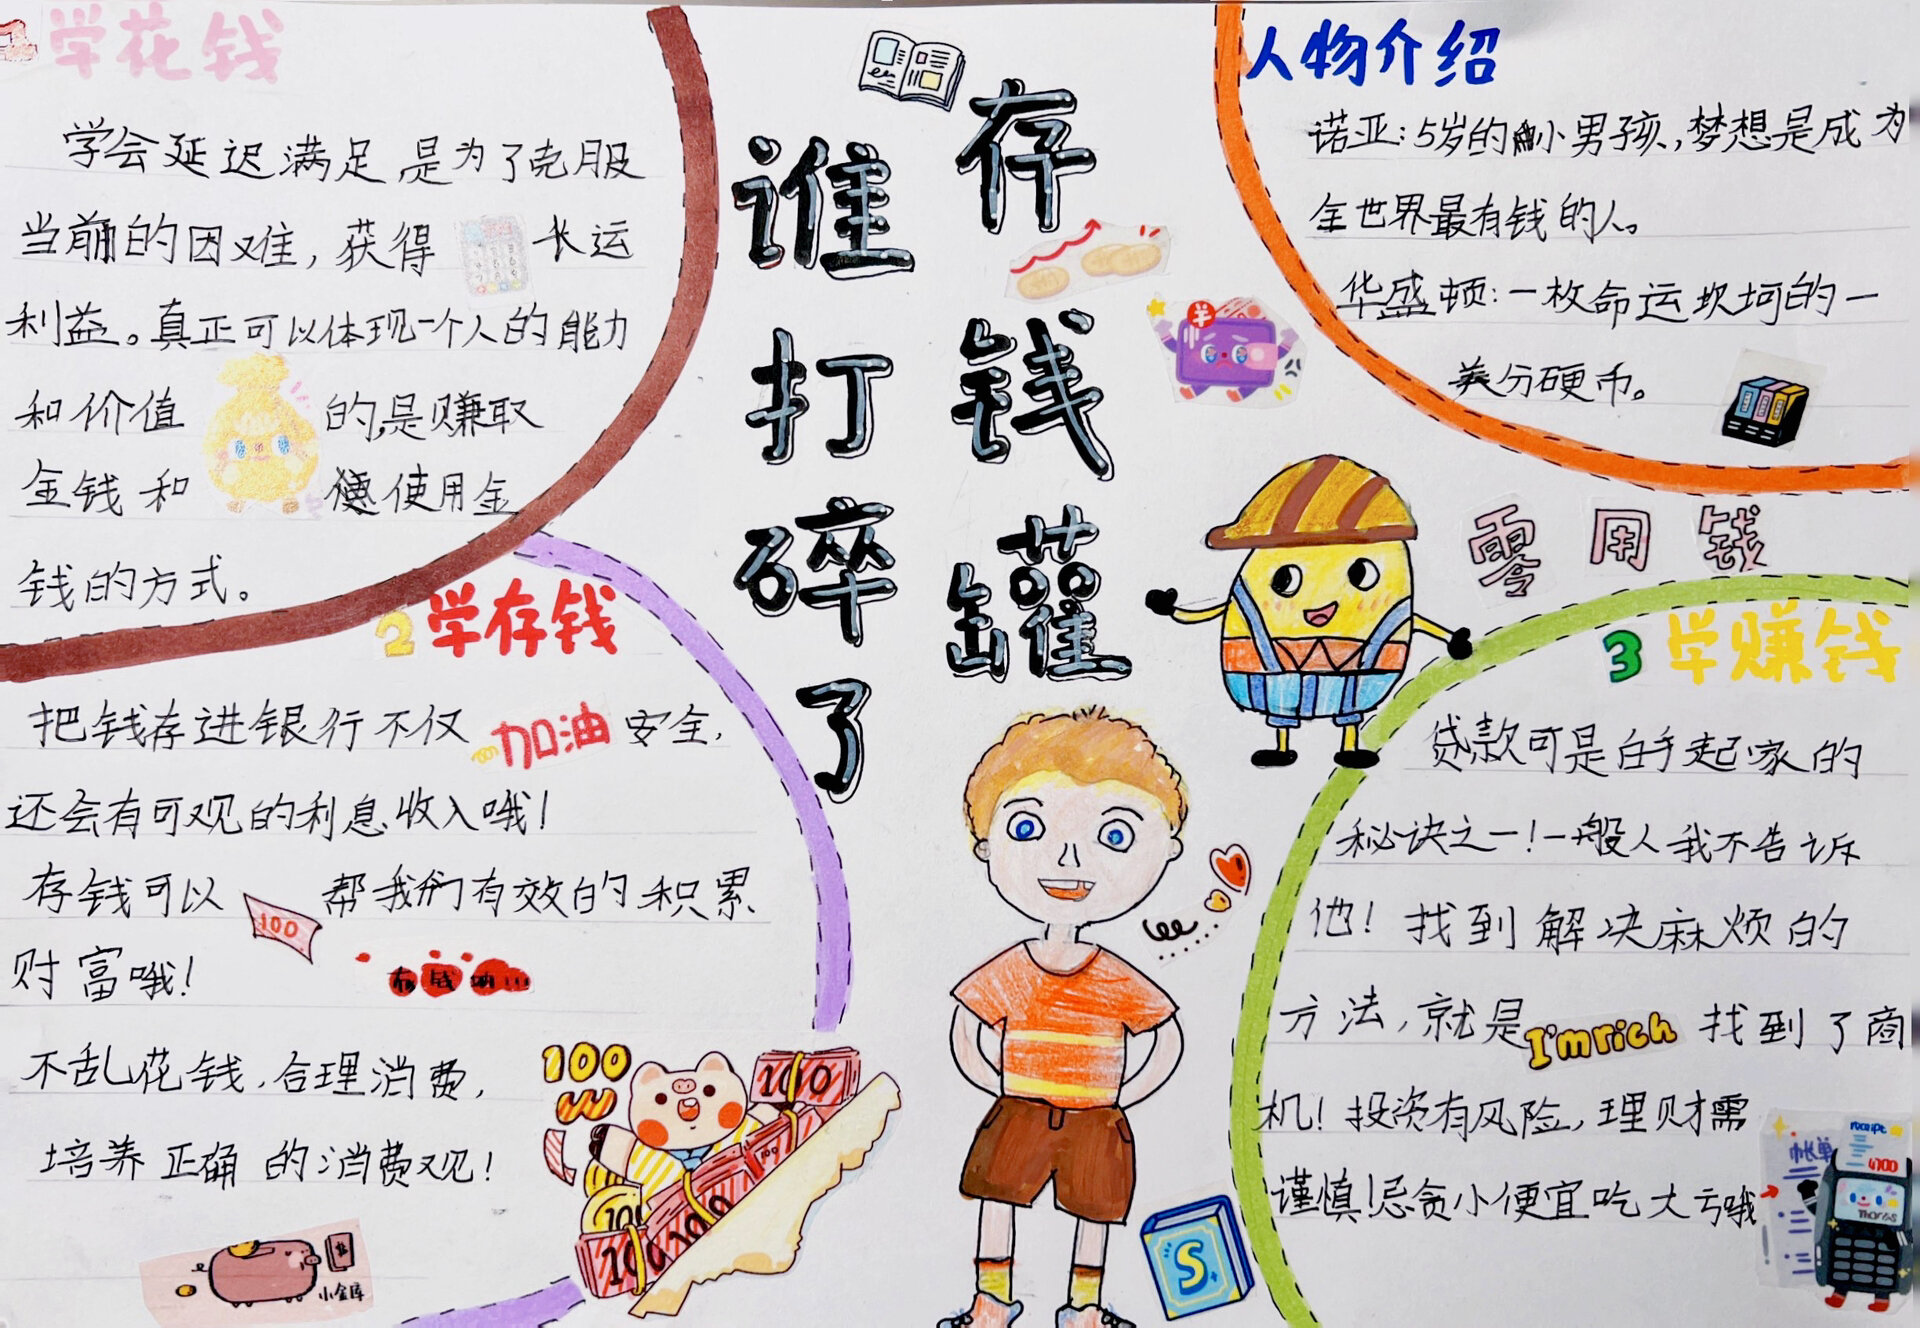 1 学花钱
学会延迟满足是为了克服
当前的困难，获得长远
利益。真正可以体现一个人的能力
和价值的是赚取
金钱和使用金
钱的方式。
2 学存钱
把钱存进银行不仅 加油 安全，
还会有可观的利息收入哦！
存钱可以 100 帮我们有效的积累
财富哦！
有钱呐!!!
不乱花钱，合理消费，
培养正确的消费观！
小金库
100
W
100
100
100
100
谁打碎了
存钱罐
S
人物介绍
诺亚：5岁的小男孩，梦想是成为
全世界最有钱的人。
华盛顿：一枚命运坎坷的一
美分硬币。
零用钱
3 学赚钱
贷款可是白手起家的
秘诀之一！一般人我不告诉
他！找到解决麻烦的
方法，就是 I'm rich 找到了商
机！投资有风险，理财需
谨慎！忌贪小便宜吃大亏哦
帐单
receipt